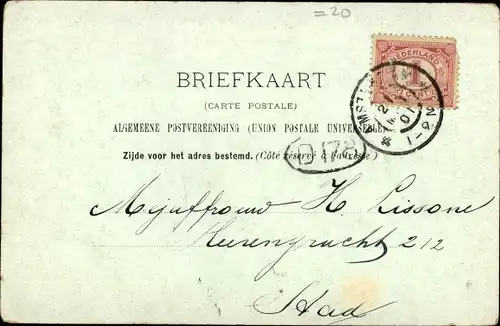 =20
NEDERLAND
1
CENT
BRIEFKAART
(CARTE POSTALE)
ALGEMEENE POSTVEREENIGING (UNION POSTALE UNIVERSELLE)
Zijde voor het adres bestemd. (Côté réservé à l'adresse.)
D 172
Mejuffrouw H. Lissone
Heerengracht 212
Stad